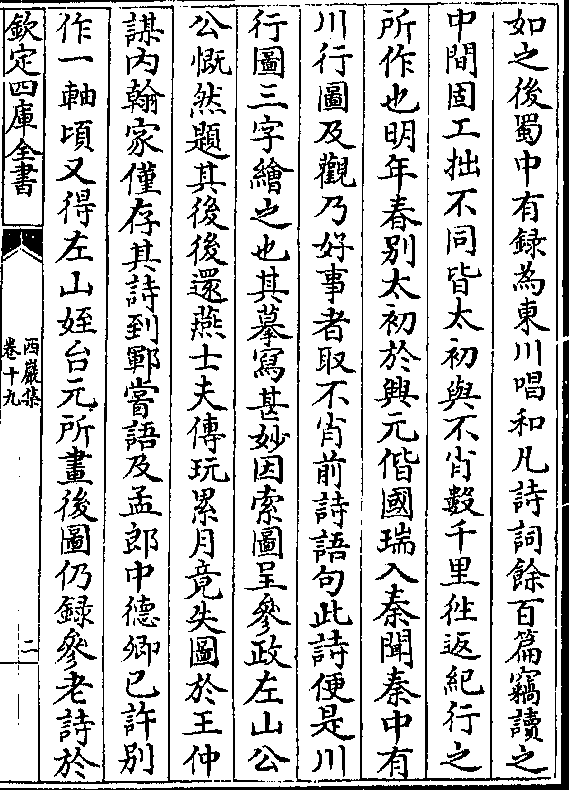 如之後蜀中有録為東川唱和凡詩詞餘百篇竊讀之
中間固工拙不同皆太初與不肖數千里徃返紀行之
所作也明年春别太初於興元偕國瑞入秦聞秦中有
川行圖及觀乃好事者取不肖前詩語句此詩便是川
行圖三字繪之也其摹寫甚妙因索圖呈參政左山公
公慨然題其後後還燕士夫傳玩累月竟失圖於王仲
謀内翰家僅存其詩到鄆嘗語及孟郎中德卿已許别
作一軸頃又得左山姪台元所畫後圖仍録參老詩於
欽定四庫全書
西巖集
卷十九
二